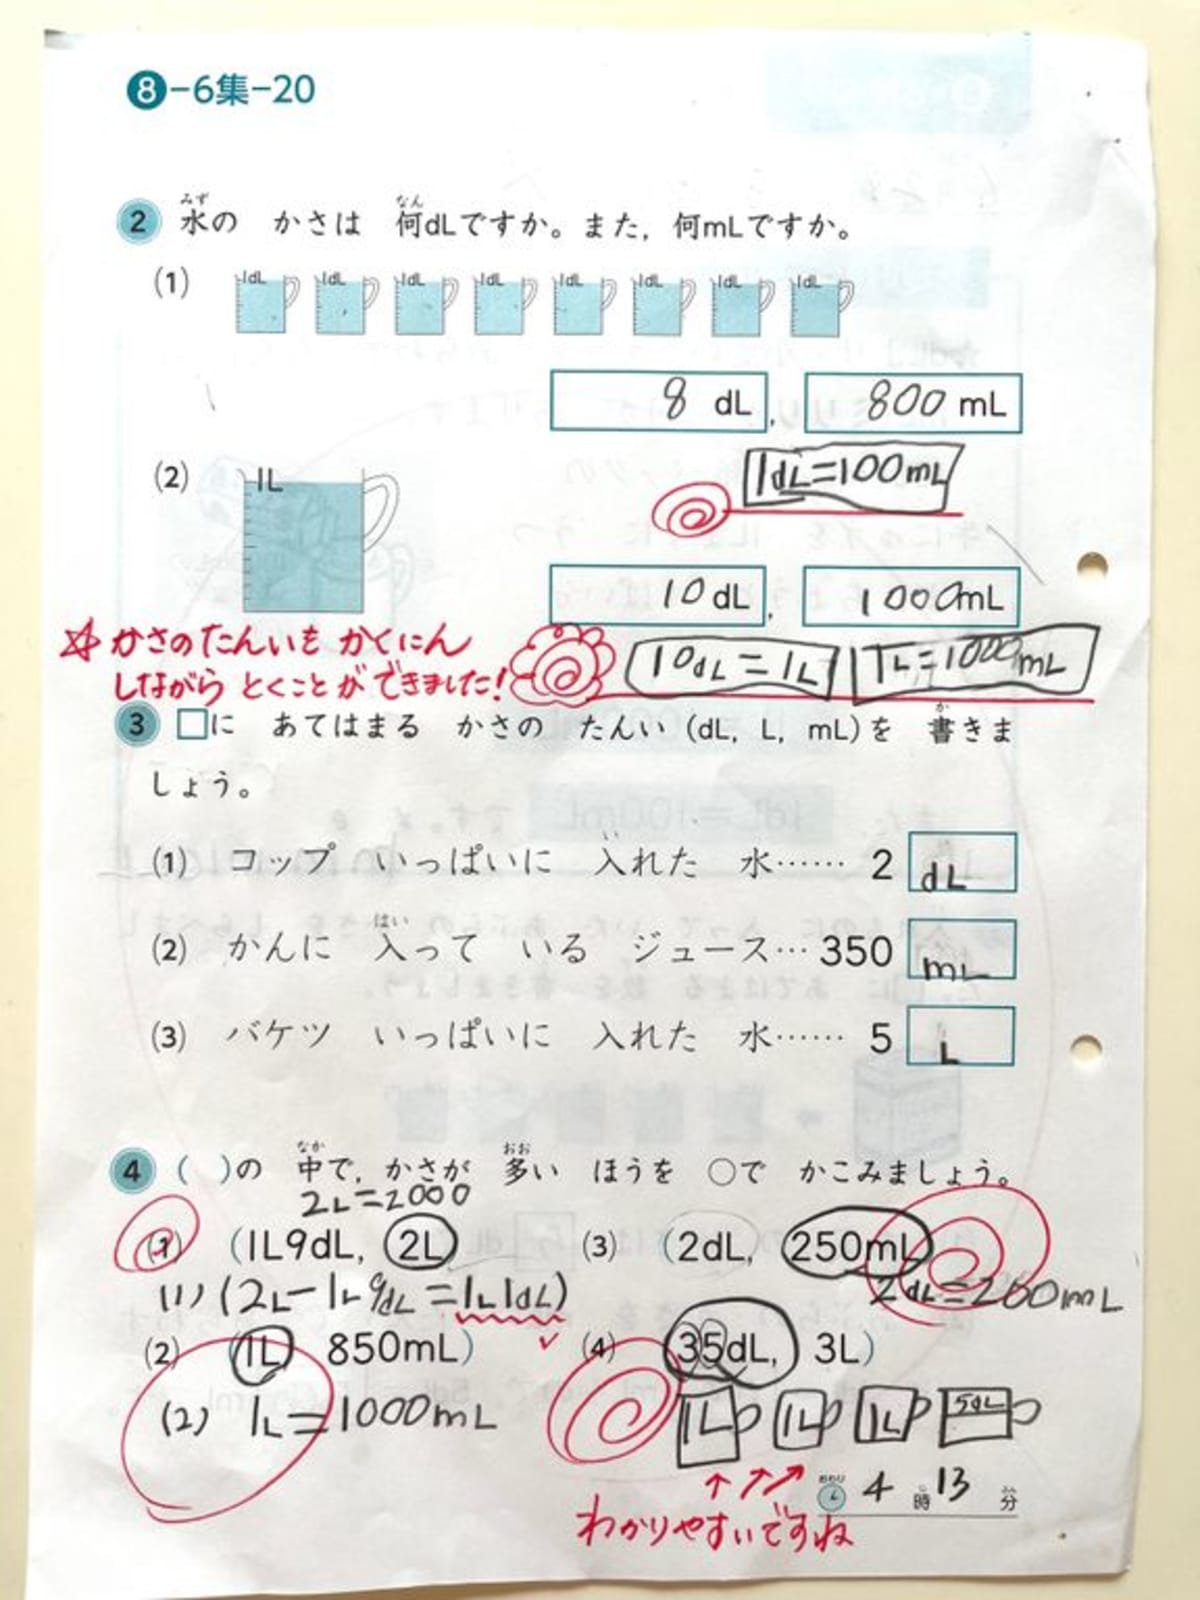 8-6集-20
2 水の かさは 何dLですか。また,何mLですか。
みず なん
(1)
1dL 1dL 1dL 1dL 1dL 1dL 1dL 1dL
8 dL, 800 mL
1dL=100mL
(2)
1L
10 dL, 1000mL
☆かさのたんいも かくにん
しながら とくことが できました!
10dL=1L 1L=1000mL
3 □に あてはまる かさの たんい(dL, L, mL)を 書きま
か
しょう。
(1) コップ いっぱいに 入れた 水…… 2 dL
い
(2) かんに 入って いる ジュース… 350 mL
はい
(3) バケツ いっぱいに 入れた 水…… 5 L
4 ( )の 中で,かさが 多い ほうを ○で かこみましょう。
なか おお
2L=2000
(1) (1L9dL, 2L) (3) (2dL, 250mL)
(1) (2L-1L9dL=1L1dL) 2dL=200mL
(2) (1L, 850mL) (4) (35dL, 3L)
(2) 1L=1000mL
1L 1L 1L 5dL
おわり 4時13分
じ ふん
わかりやすいですね